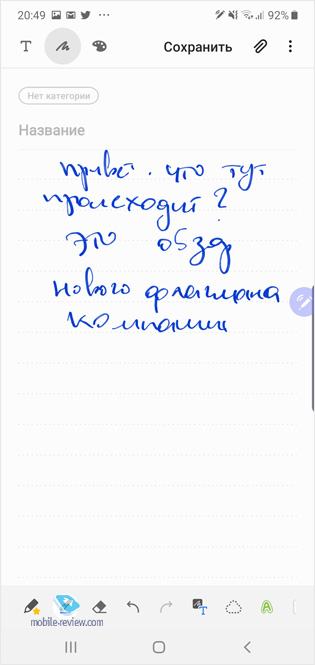 20:49 92%
T Сохранить
Нет категории
Название
привет. что тут
происходит?
это обзор
нового флагмана
компании
T A
mobile-review.com